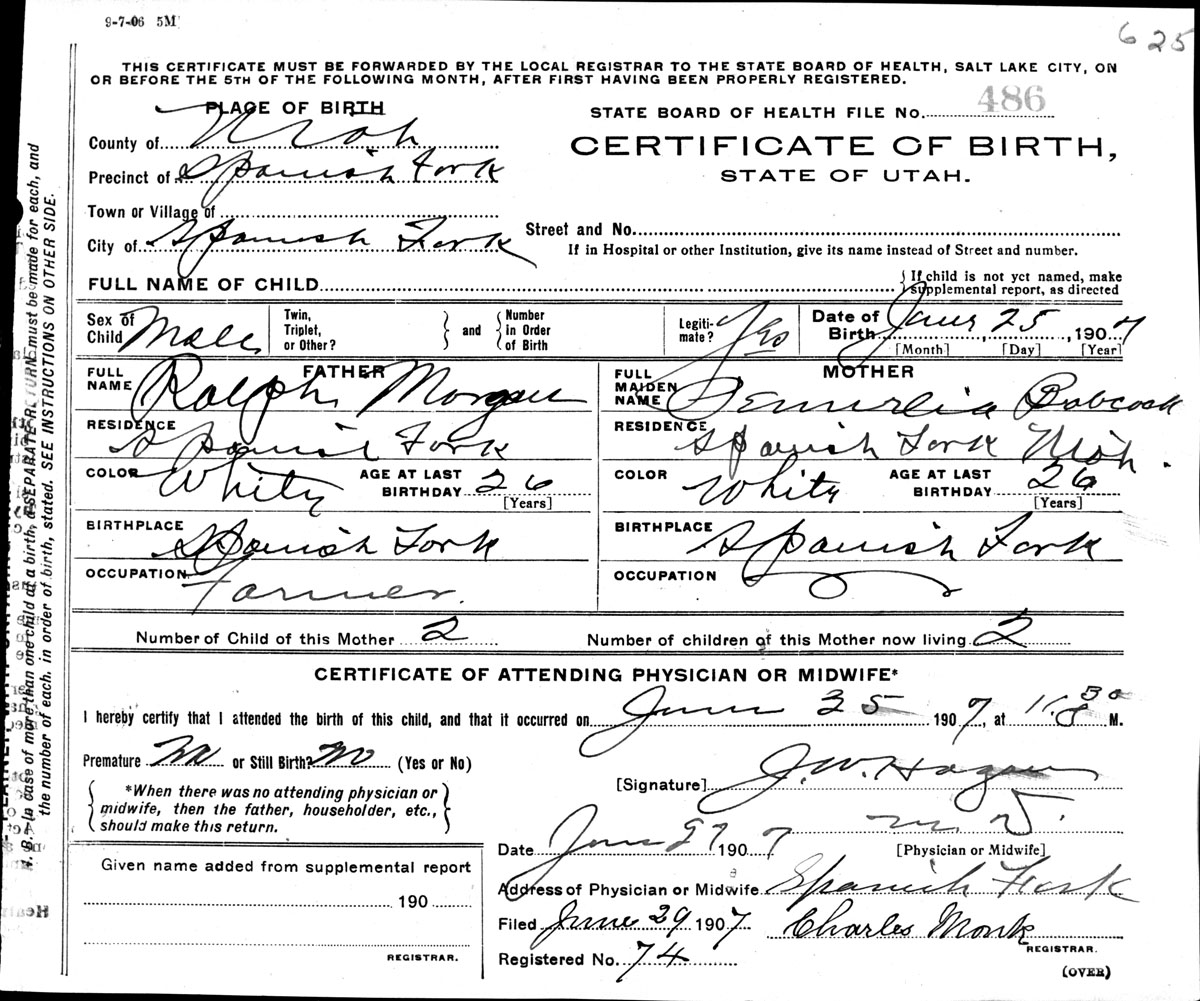 9-7-06 5M
625
THIS CERTIFICATE MUST BE FORWARDED BY THE LOCAL REGISTRAR TO THE STATE BOARD OF HEALTH, SALT LAKE CITY, ON
OR BEFORE THE 5TH OF THE FOLLOWING MONTH, AFTER FIRST HAVING BEEN PROPERLY REGISTERED.
PLACE OF BIRTH
STATE BOARD OF HEALTH FILE No. 486
County of Utah
CERTIFICATE OF BIRTH,
Precinct of Spanish Fork
STATE OF UTAH.
Town or Village of
Street and No.
City of Spanish Fork
If in Hospital or other Institution, give its name instead of Street and number.
FULL NAME OF CHILD
If child is not yet named, make
supplemental report, as directed
Sex of Child Male
Twin, Triplet, or Other?
and
Number in Order of Birth
Legiti-mate? Yes
Date of Birth June 25, 1907
[Month] [Day] [Year]
FATHER
FULL NAME Ralph Morgan
MOTHER
FULL MAIDEN NAME Babcock
RESIDENCE Spanish Fork
RESIDENCE Spanish Fork Utah.
COLOR White
AGE AT LAST BIRTHDAY 26 [Years]
COLOR White
AGE AT LAST BIRTHDAY 26 [Years]
BIRTHPLACE Spanish Fork
BIRTHPLACE Spanish Fork
OCCUPATION Farmer.
OCCUPATION
Number of Child of this Mother 2
Number of children of this Mother now living 2
CERTIFICATE OF ATTENDING PHYSICIAN OR MIDWIFE*
I hereby certify that I attended the birth of this child, and that it occurred on June 25 1907, at 11.30 M.
Premature No or Still Birth? No (Yes or No)
[Signature] J. W. Hagan
*When there was no attending physician or
midwife, then the father, householder, etc.,
should make this return.
M. D.
[Physician or Midwife]
Date June 27 1907
Given name added from supplemental report
190
REGISTRAR.
Address of Physician or Midwife Spanish Fork
Filed June 29 1907
Charles Monk
REGISTRAR.
Registered No. 74
(OVER)
N. B. In case of more than one child at a birth, a SEPARATE RETURN must be made for each, and
the number of each, in order of birth, stated. SEE INSTRUCTIONS ON OTHER SIDE.